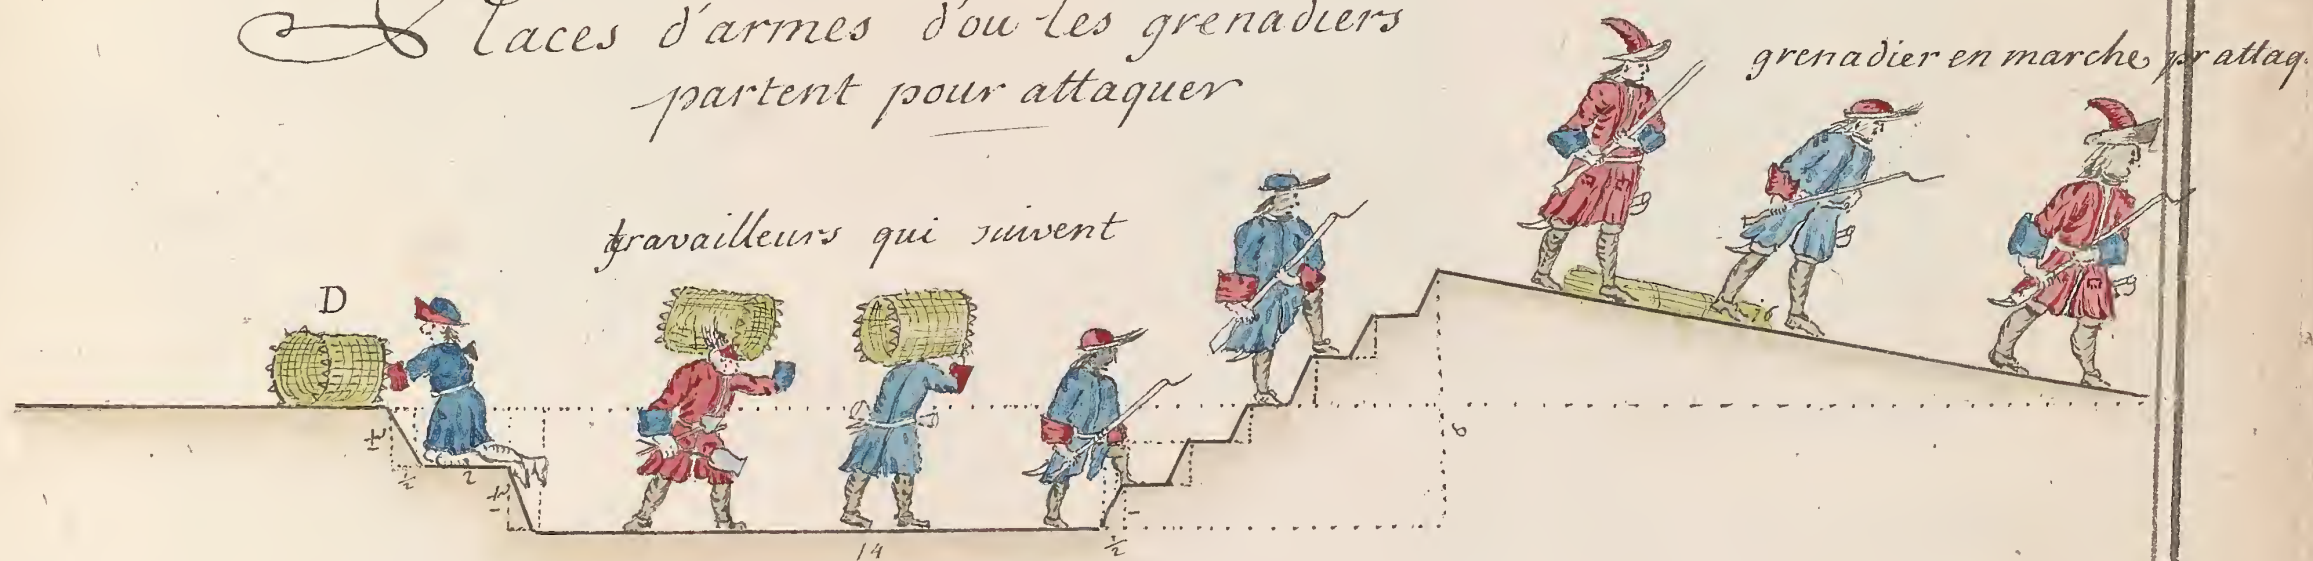 Places d'armes d'ou les grenadiers
partent pour attaquer
grenadier en marche pr attaq.
travailleurs qui suivent
D
1½
½
2
1½
14
1
½
6